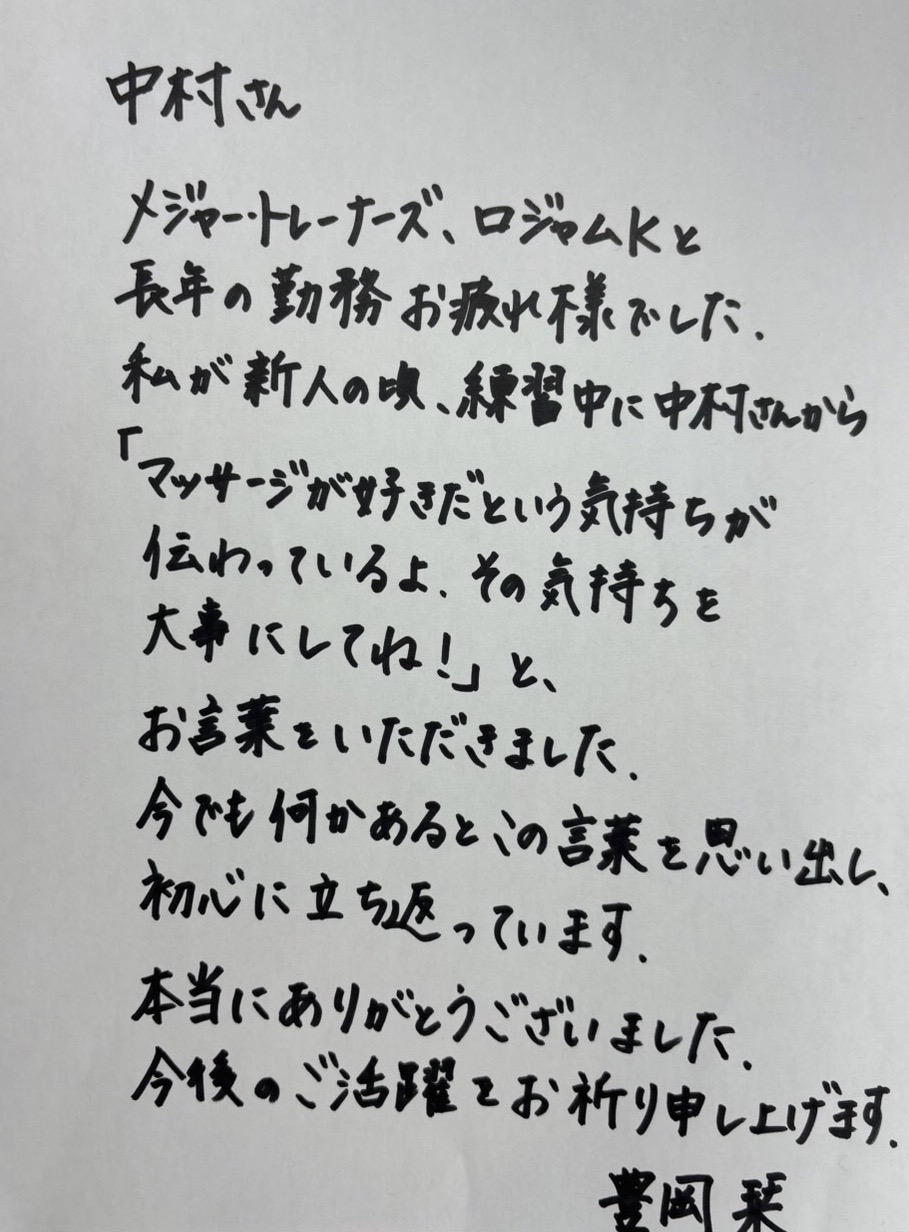 中村さん
メジャー・トレーナーズ、ロジャムKと
長年の勤務お疲れ様でした.
私が新人の頃、練習中に中村さんから
「マッサージが好きだという気持ちが
伝わっているよ.その気持ちを
大事にしてね!」と、
お言葉をいただきました.
今でも何かあるとこの言葉を思い出し、
初心に立ち返っています.
本当にありがとうございました.
今後のご活躍をお祈り申し上げます.
豊岡 栞